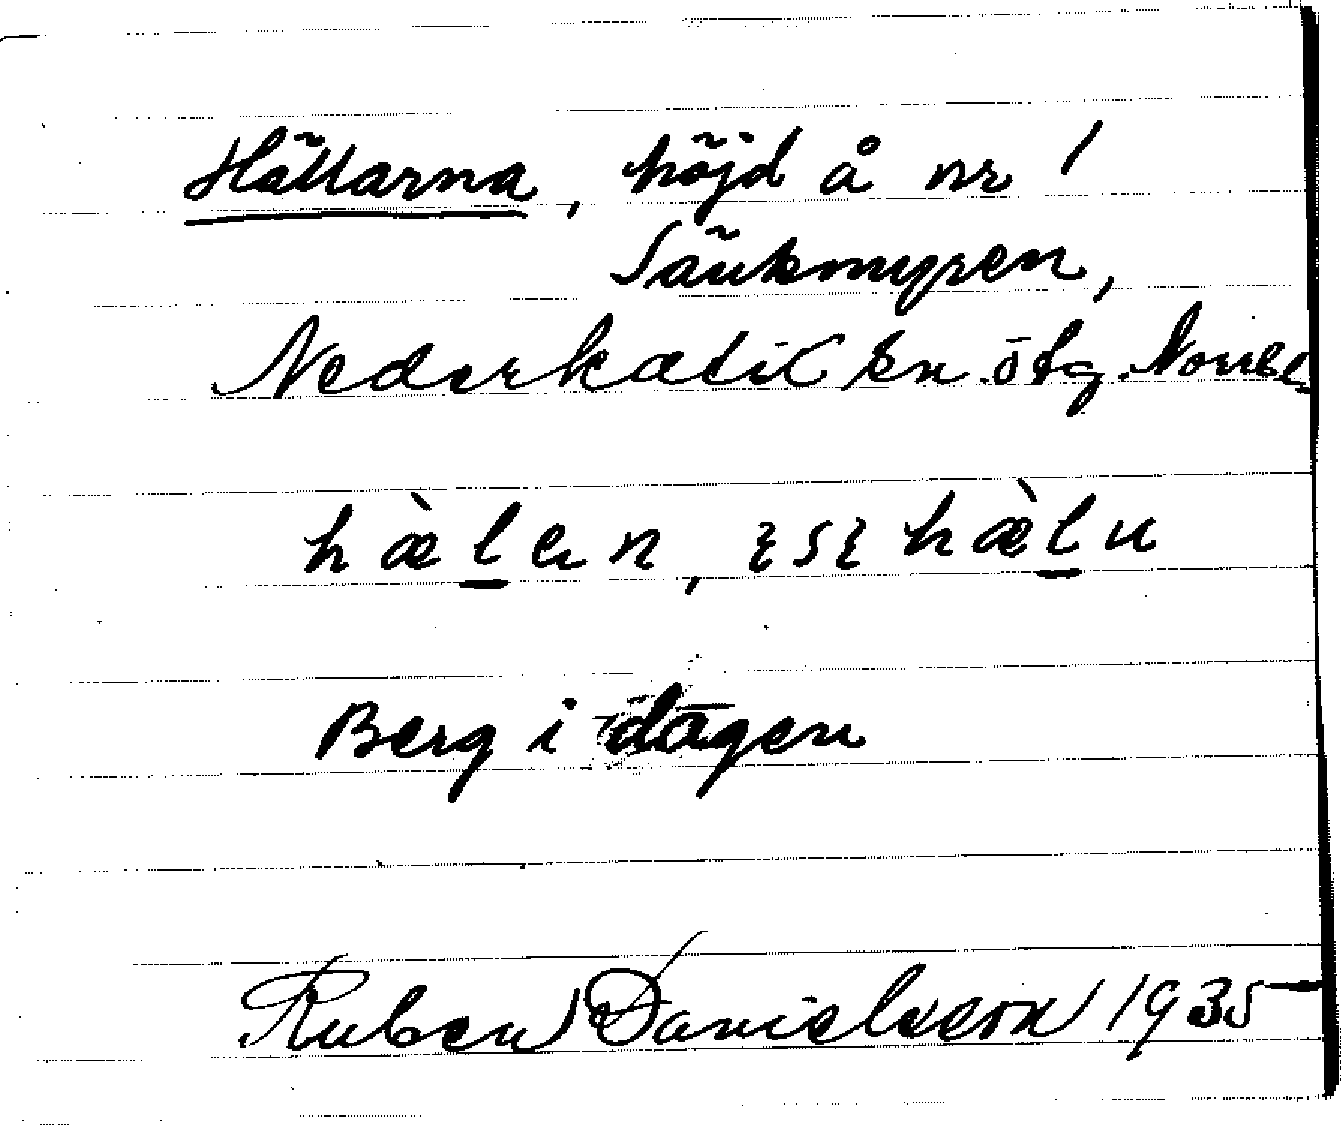 Hällarna, höjd å nr 1
Säukmyren,
Nederkalix sn ötg. Norrb
hæ̀len, hæ̀lu
Berg i dagen
Ruben Danielsson 1935